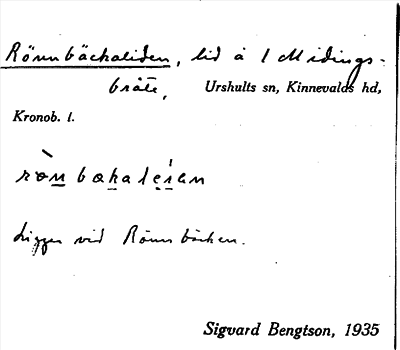 Rönnbäckaliden, lid å 1 Midings-
bråte,
Urshults sn, Kinnevalds hd,
Kronob. l.
rònbækaleían
Ligger vid Rönnbäcken.
Sigvard Bengtson, 1935